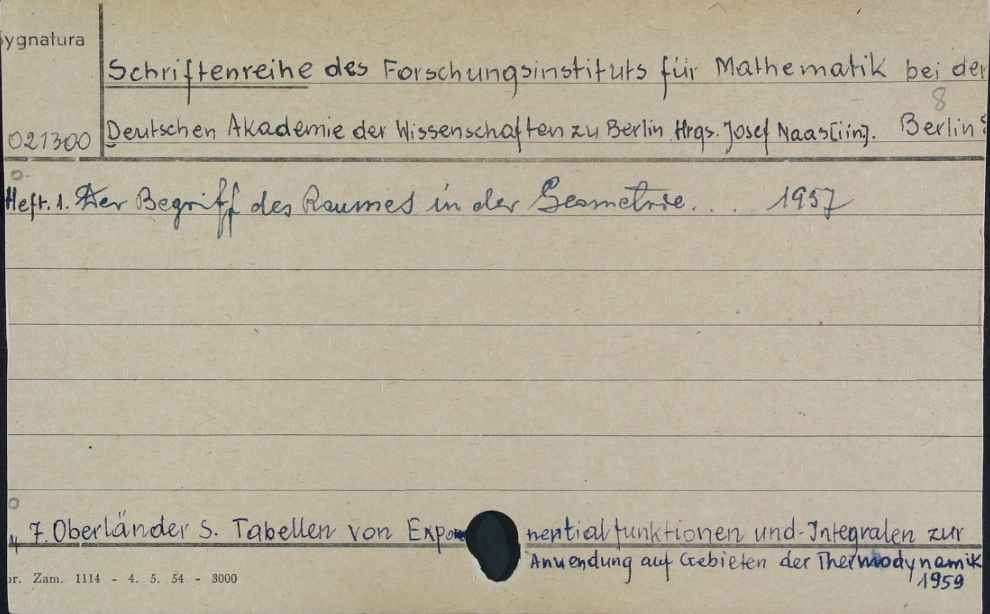 Sygnatura
Schriftenreihe des Forschungsinstituts für Mathematik bei der
8
021300 Deutschen Akademie der Wissenschaften zu Berlin. Hrgs. Josef Naas [iin]. Berlin
Heft. 1. Der Begriff des Raumes in der Geometrie. . . . 1957
7. Oberländer S. Tabellen von Exponentialfunktionen und-Integralen zur
Anwendung auf Gebieten der Thermodynamik
1959
Zam. 1114 - 4. 5. 54 - 3000